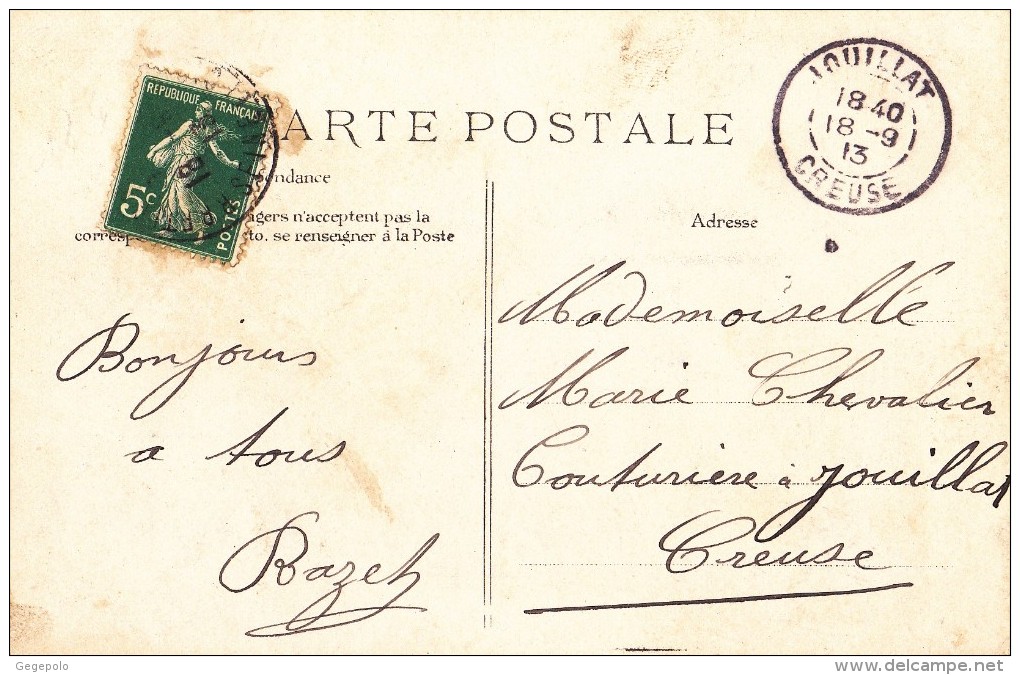 ARTE POSTALE
RÉPUBLIQUE FRANÇAI
5c
POSTES
18
JOUILLAT
18 40
18 -9
13
CREUSE
ondance
Adresse
gers n'acceptent pas la
corresp to. se renseigner à la Poste
Bonjours
a tous
Mademoiselle
Marie Chevalier
Couturière à Jouillat
Creuse
Gegepolo
www.delcampe.net